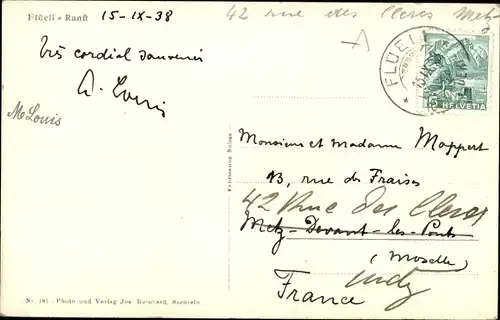 Flüeli - Ranft 15-IX-38
42 rue des Clercs Metz
Très cordial souvenir
A. Louis
M Louis
FLUELI
15.IX
5 HELVETIA
Monsieur et Madame Mappert
13, rue des Fraises
42 Rue des Clercs
Metz-Devant-les-Ponts
(Moselle)
Metz
France
Nr. 181 - Photo und Verlag Jos Reinhard, Sachseln